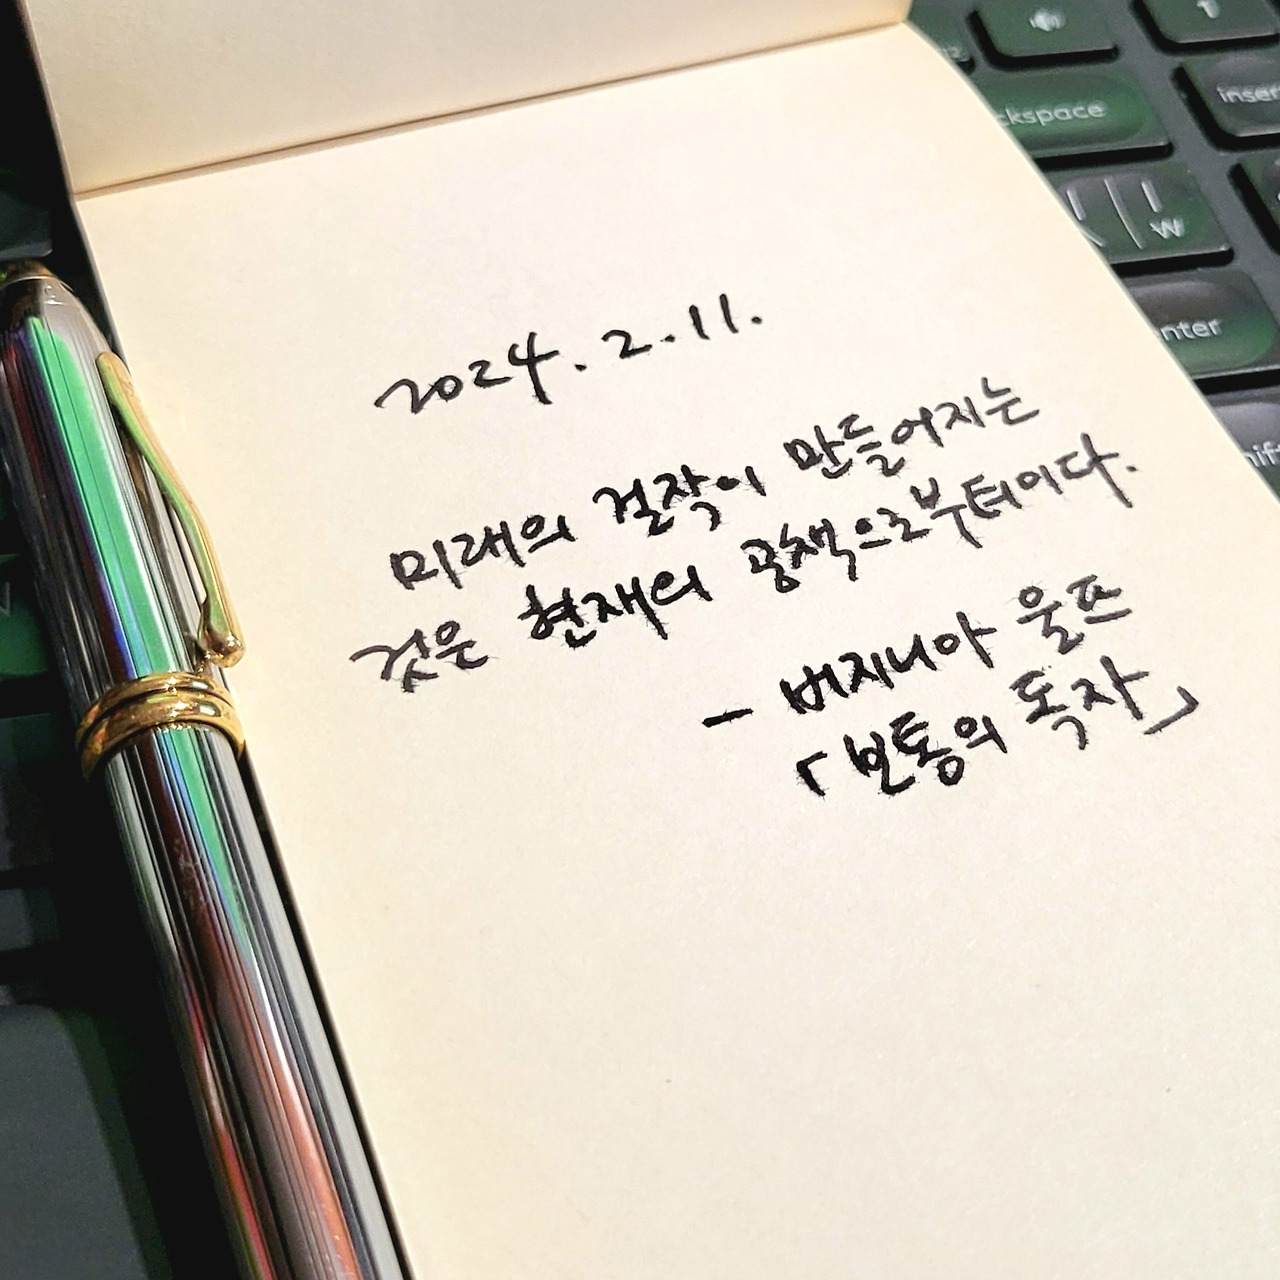 2024. 2. 11.
미래의 걸작이 만들어지는
것은 현재의 공책으로부터이다.
- 버지니아 울프
「보통의 독자」
ckspace
inser
W
nter
hift